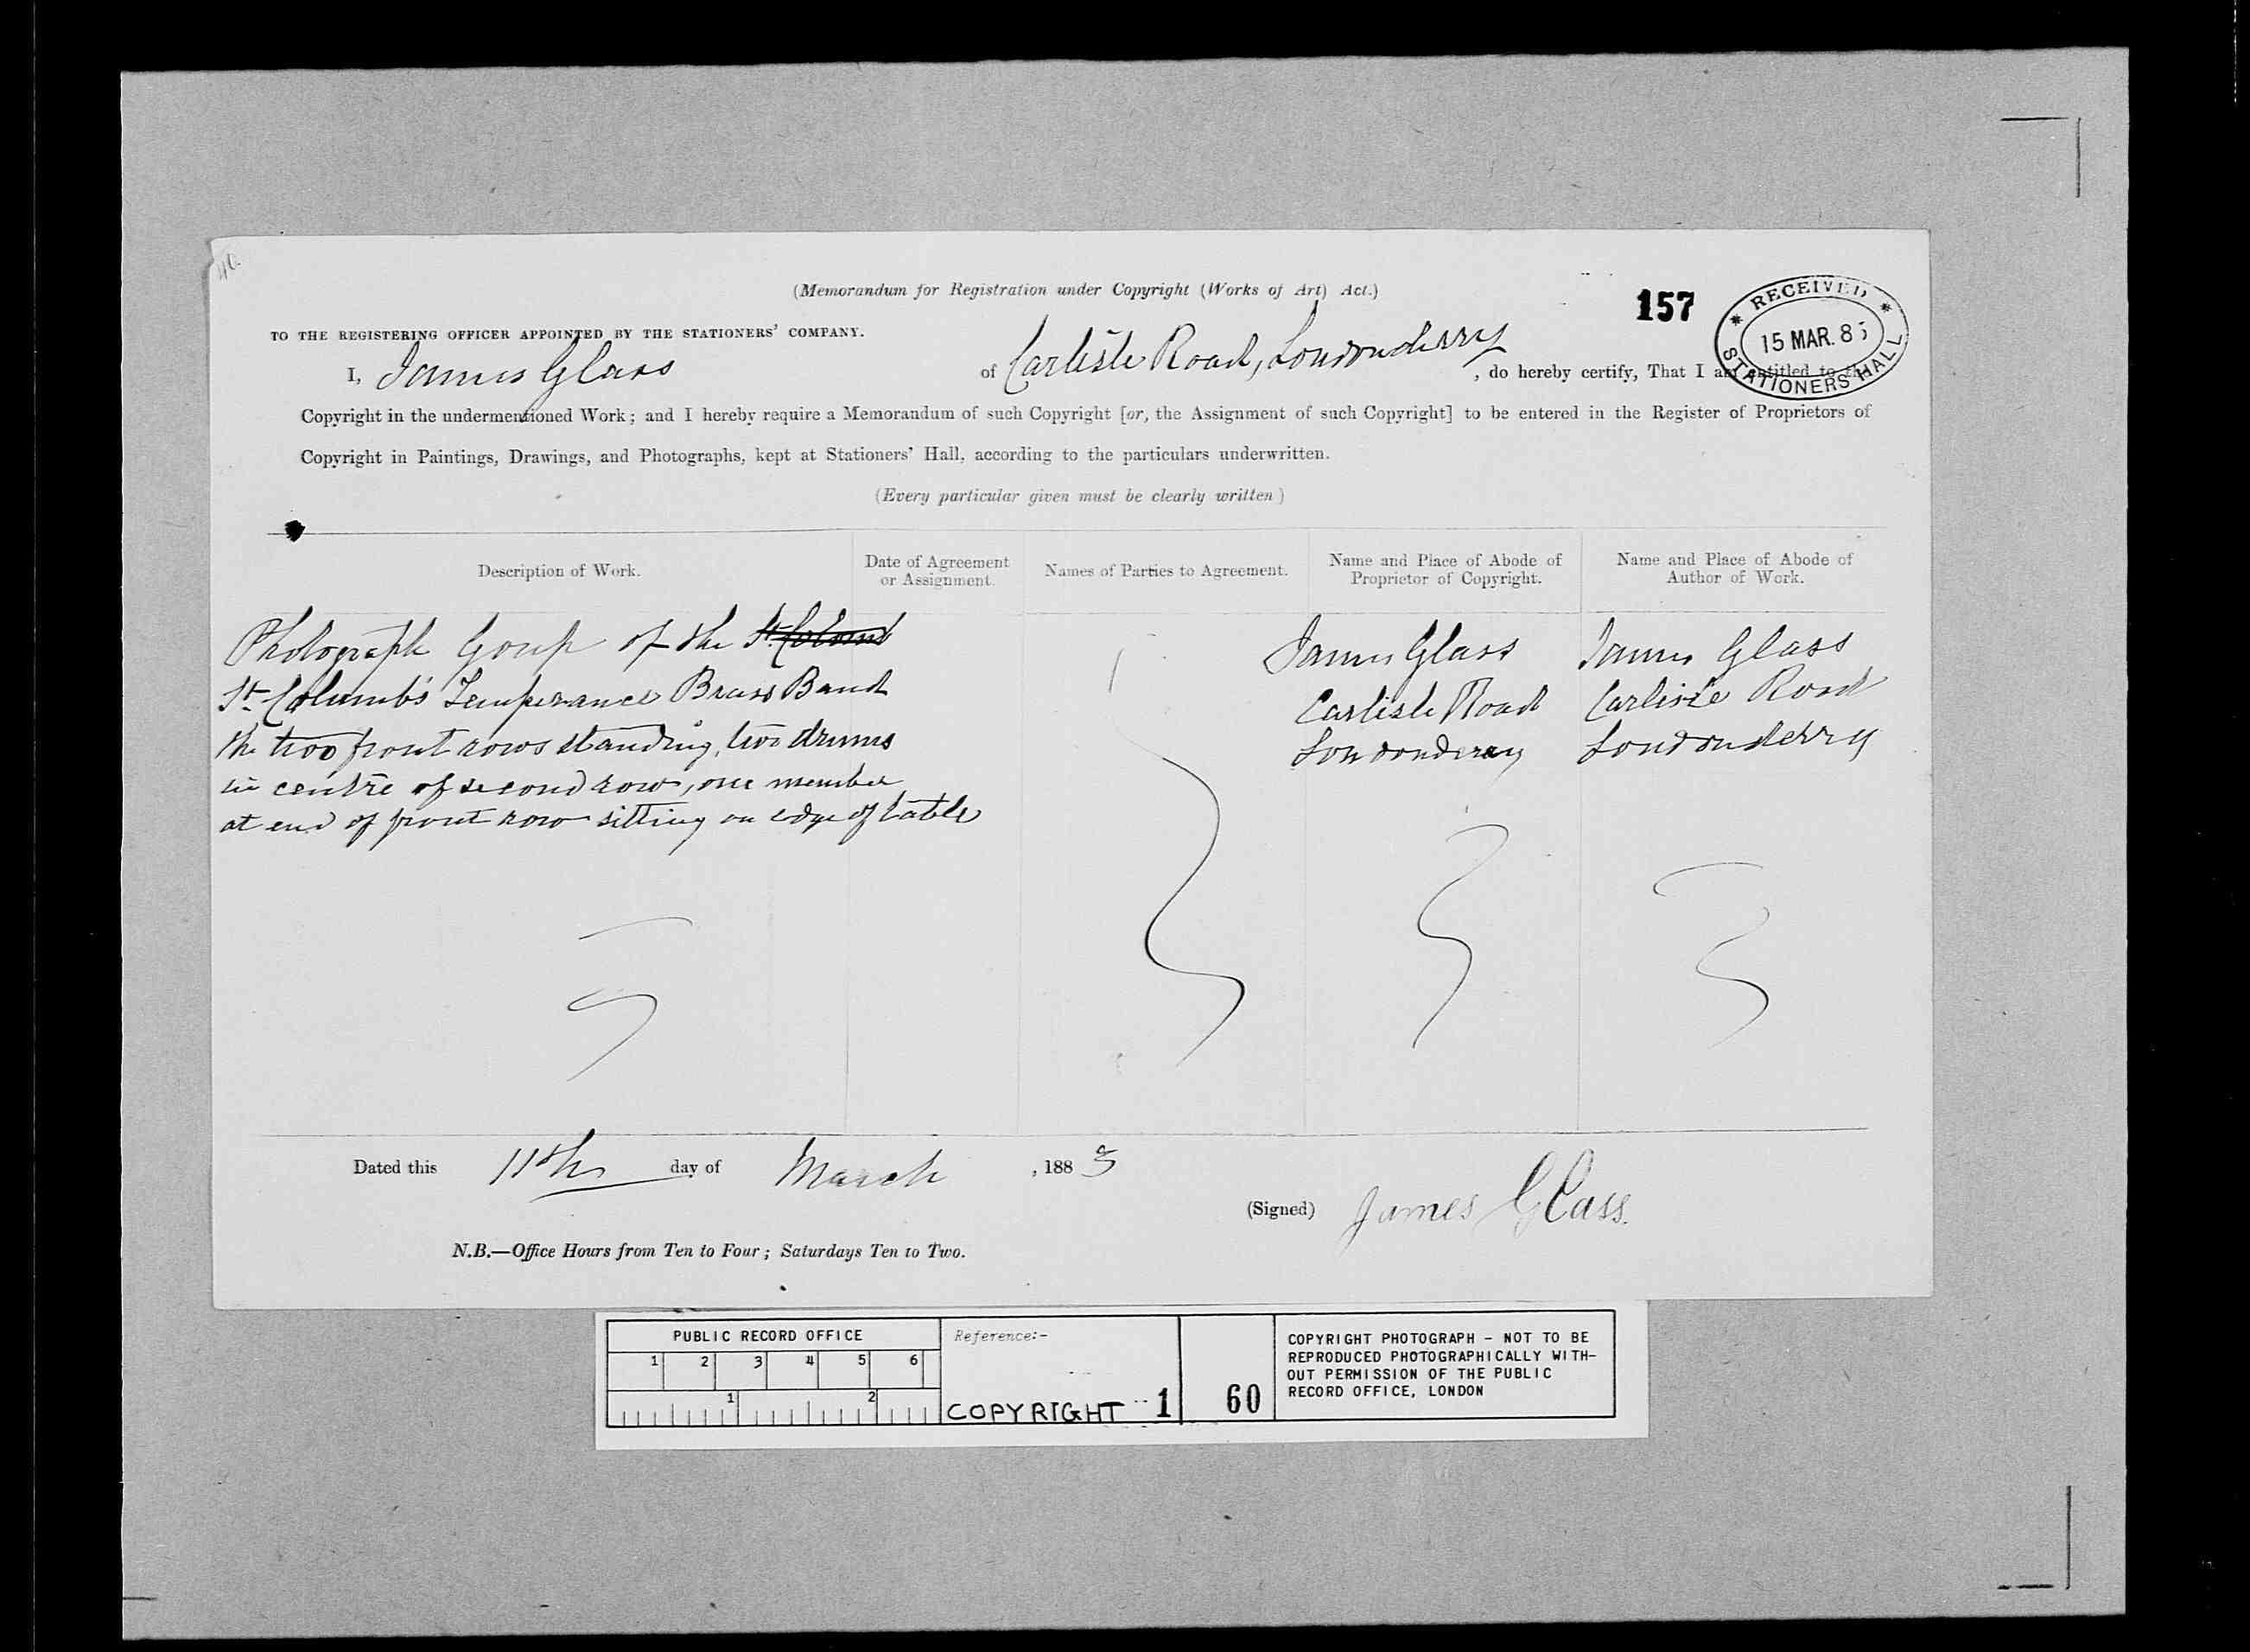 (Memorandum for Registration under Copyright (Works of Art) Act.)
157
RECEIVED
15 MAR. 83
STATIONERS HALL
TO THE REGISTERING OFFICER APPOINTED BY THE STATIONERS' COMPANY.
I, James Glass of Carlisle Road, Londonderry, do hereby certify, That I am entitled to the
Copyright in the undermentioned Work; and I hereby require a Memorandum of such Copyright [or, the Assignment of such Copyright] to be entered in the Register of Proprietors of
Copyright in Paintings, Drawings, and Photographs, kept at Stationers' Hall, according to the particulars underwritten.
(Every particular given must be clearly written)
Description of Work.
Date of Agreement
or Assignment.
Names of Parties to Agreement.
Name and Place of Abode of
Proprietor of Copyright.
Name and Place of Abode of
Author of Work.
Photograph Goup of the St. Colomb
St. Columb's Temperance Brass Band
the two front rows standing, two drums
in centre of second row, one member
at end of front row sitting on edge of table
James Glass
Carlisle Road
Londonderry
James Glass
Carlisle Road
Londonderry
Dated this 11th day of March, 1883
(Signed) James Glass.
N.B.—Office Hours from Ten to Four; Saturdays Ten to Two.
PUBLIC RECORD OFFICE
1 2 3 4 5 6
1 2
Reference:-
COPYRIGHT 1
60
COPYRIGHT PHOTOGRAPH - NOT TO BE
REPRODUCED PHOTOGRAPHICALLY WITH-
OUT PERMISSION OF THE PUBLIC
RECORD OFFICE, LONDON